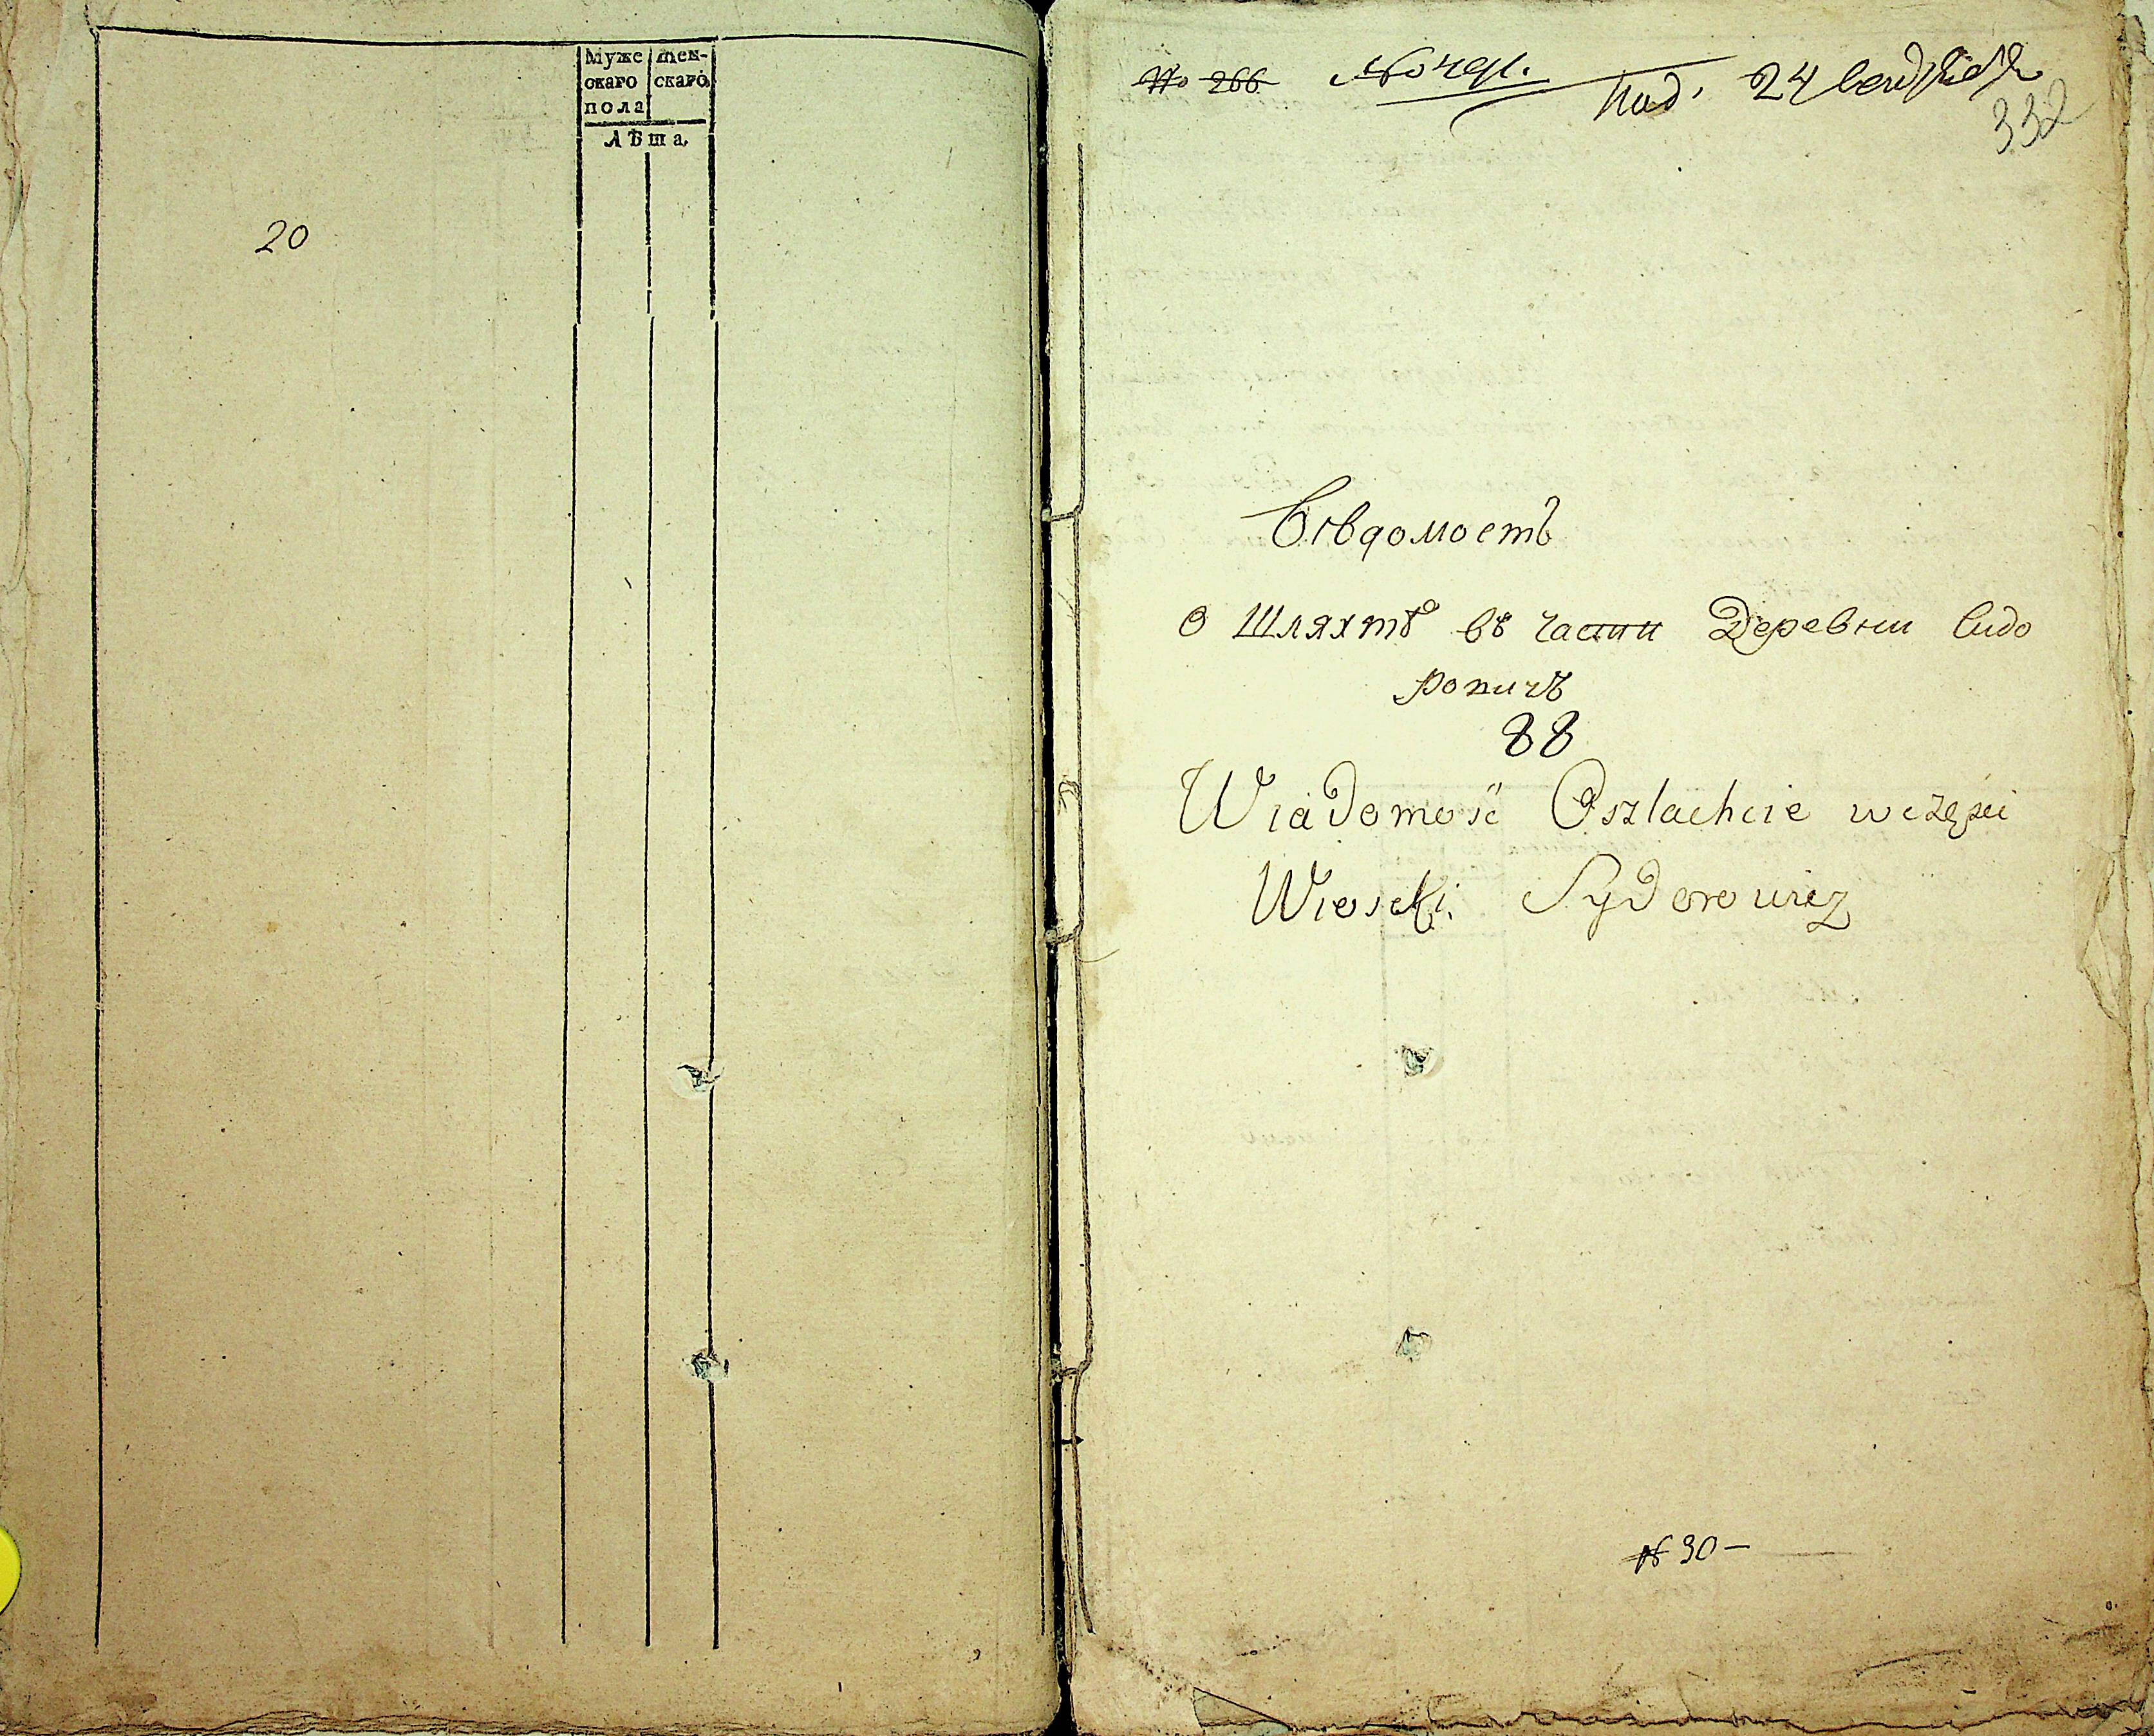 Муже Жен-
скаго скаго
пола
Лѣта
20
№ 266 Под. 24 Сентября
332
Вѣдомость
О Шляхтѣ въ части Деревни Сидо
ровичъ
88
Wiadomosć Oszlachcie wczęsci
Wioski Sydorowicz
№ 30 —